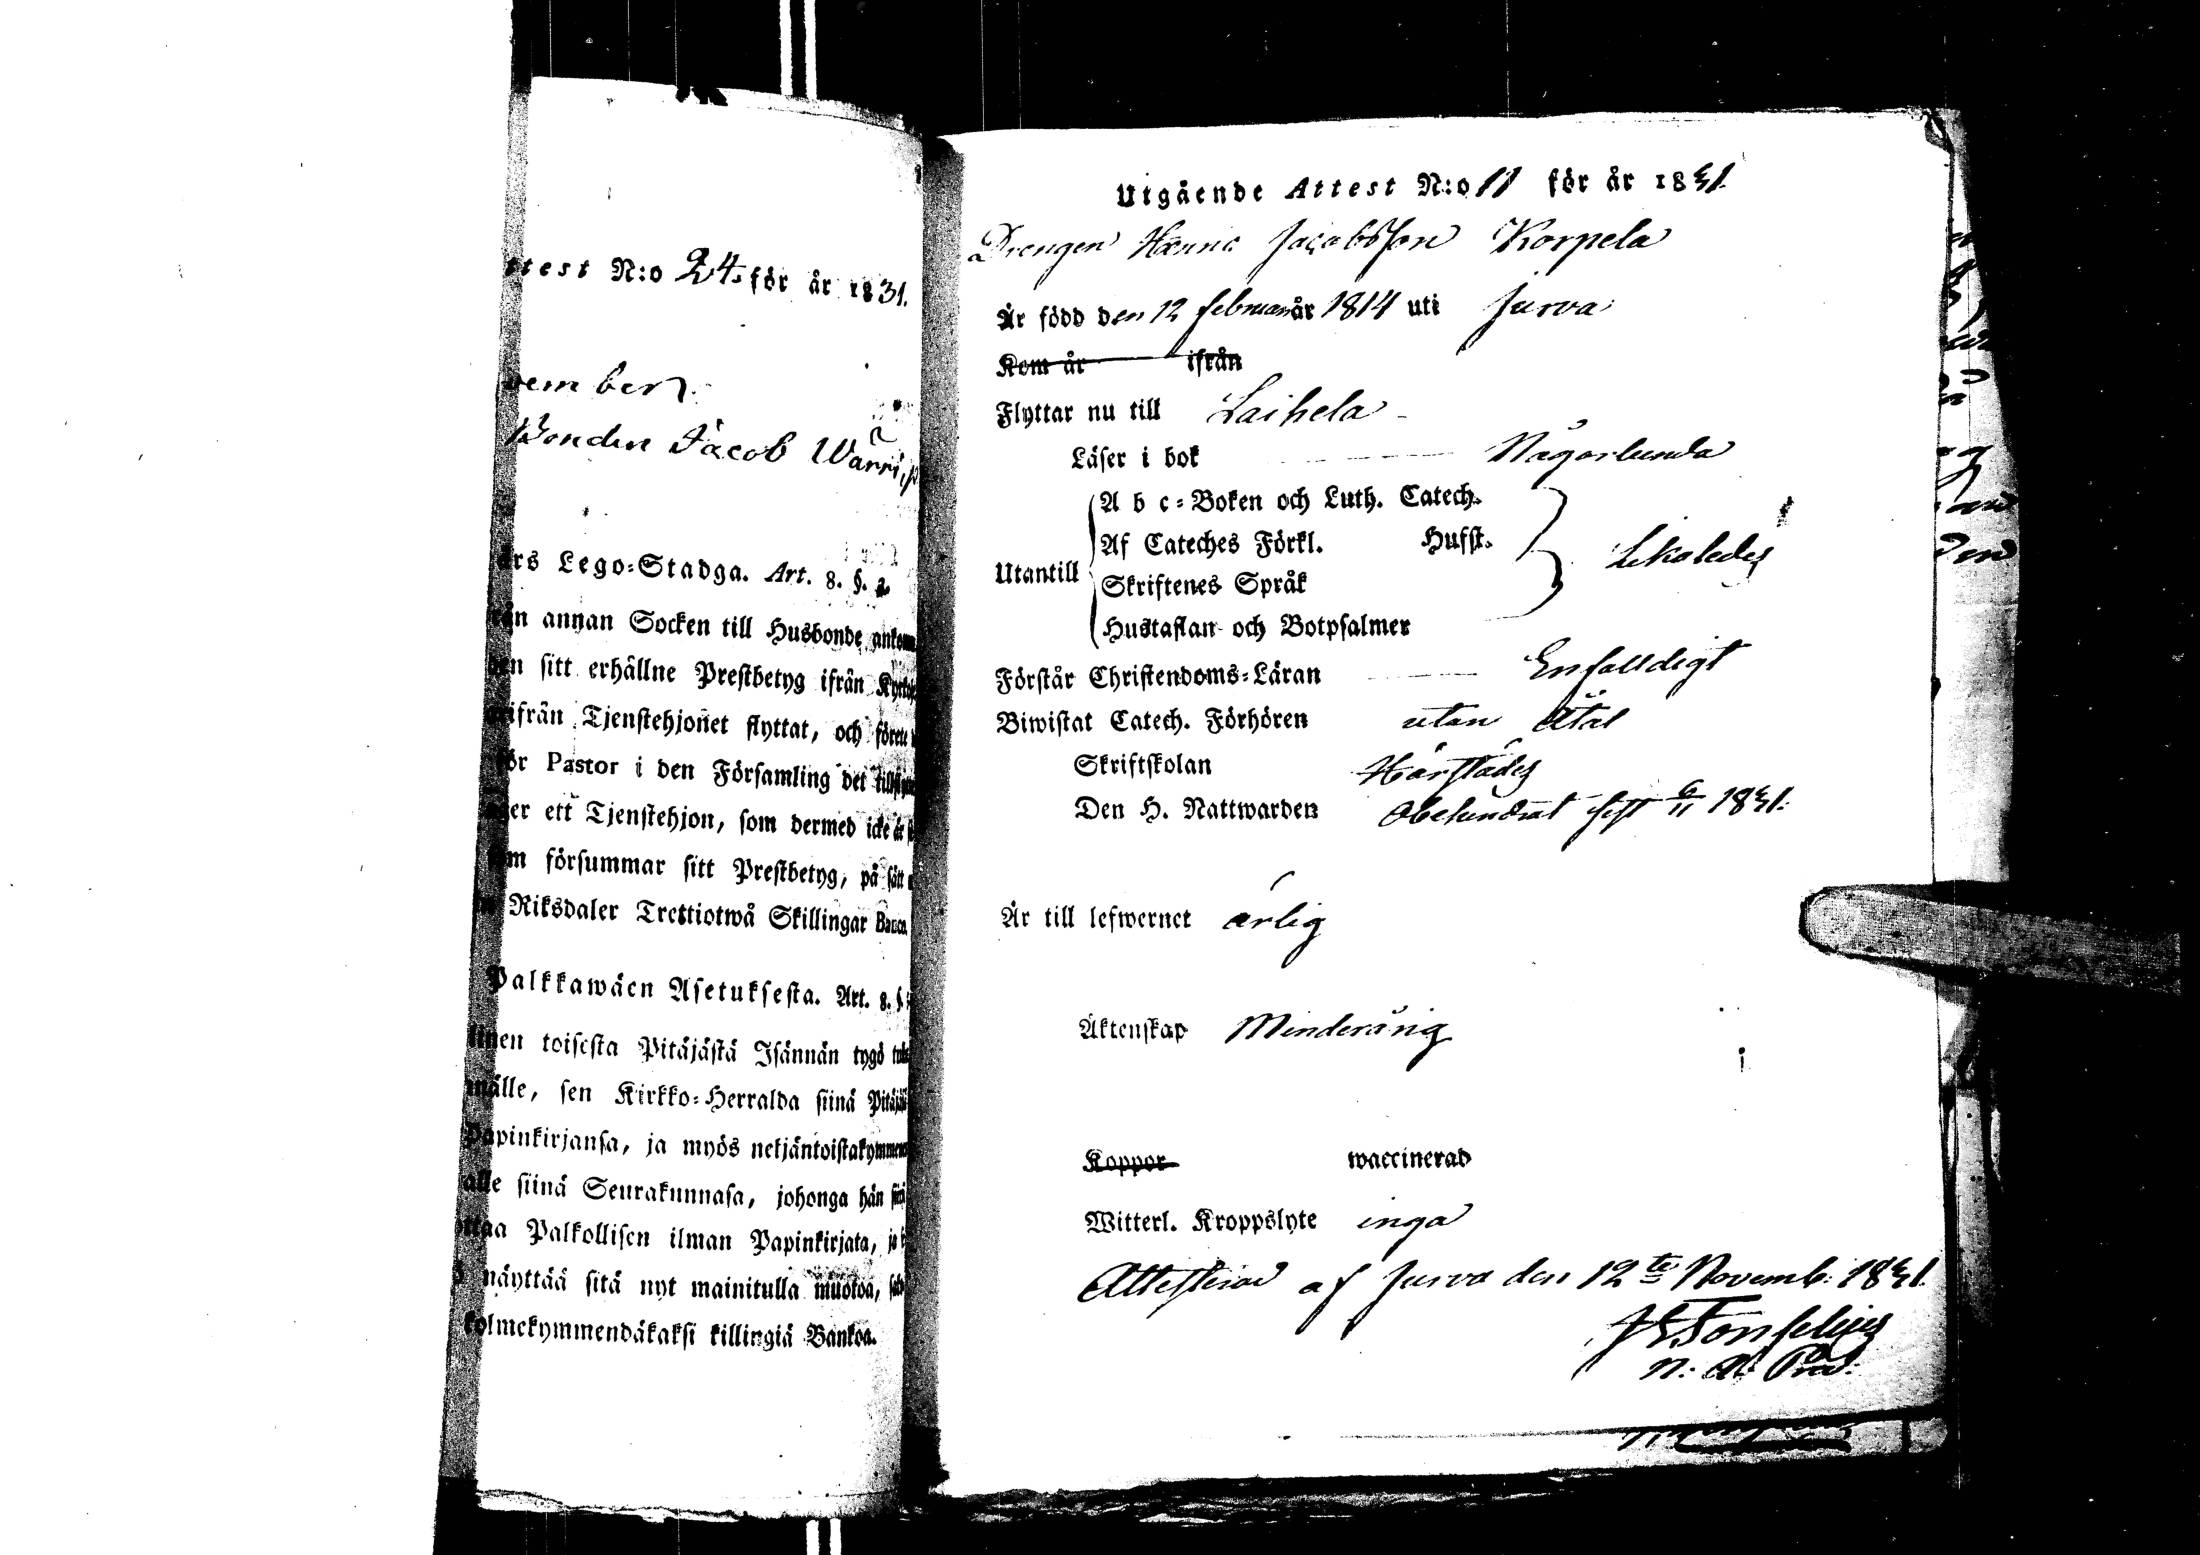 ttest N:o 24 för år 1831.
vember
Bonden Jacob Wärri
års Lego=Stadga. Art. 8. §. 2.
rån annan Socken till Husbonde ankom
den sitt erhållne Prestbetyg ifrån Kyrko
ifrån Tjenstehjonet flyttat, och förete
för Pastor i den Församling det
ett Tjenstehjon, som dermed icke är
som försummar sitt Prestbetyg, på sätt
Riksdaler Trettiotwå Skillingar Banco.
Palkkawäen Asetuksesta. Art. 8. §.
linen toisesta Pitäjästä Isännän tygö
mälle, sen Kirkko=Herralda siinä Pitäjä
Papinkirjansa, ja myös neljäntoistakymmenen
alle siinä Seurakunnasa, johonga hän
ottaa Palkollisen ilman Papinkirjata, ja
näyttää sitä nyt mainitulla muotoa,
kolmekymmendäkaksi killingiä Bankoa.
Utgående Attest N:o 11 för år 1831.
Drengen Hanns Jacobsson Korpela
Är född den 12 februari år 1814 uti Jurva
Kom år ifrån
Flyttar nu till Laihela
Läser i bok Någorlunda
A b c=Boken och Luth. Catech.
Af Cateches Förkl. Husst.
Utantill likaledes
Skriftenes Språk
Hustaflan och Botpsalmer
Förstår Christendoms=Läran Enfalldigt
Biwistat Catech. Förhören utan Åtal
Skriftskolan Härstädes
Den H. Nattwarden Obehindrat sist 6/11 1831.
Är till lefwernet ärlig
Äktenskap Minderårig
Koppor waccinerad
Witterl. Kroppslyte inga
Attesterar af Jurva den 12te Novemb: 1831.